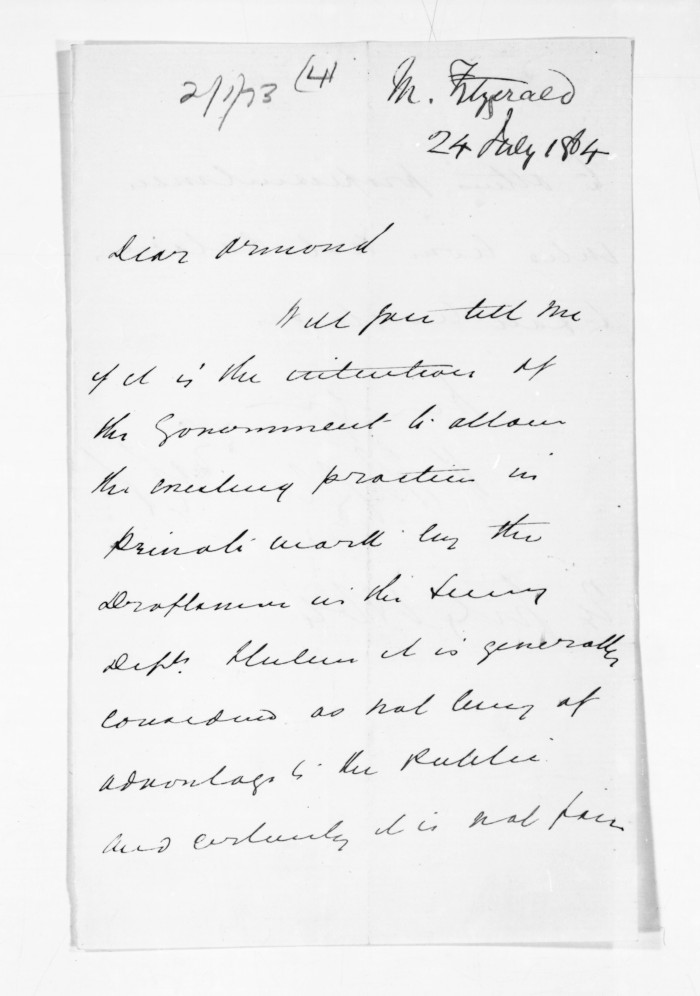 2/1/73 (4) M. Fitzgerald
24 July 1864
Dear Ormond
Will you tell me
if it is the intention of
the Government to allow
the existing practice in
Private work by the
Draftsmen in the Survey
Depts. I believe it is generally
considered as not being of
advantage to the Public
and certainly it is not fair